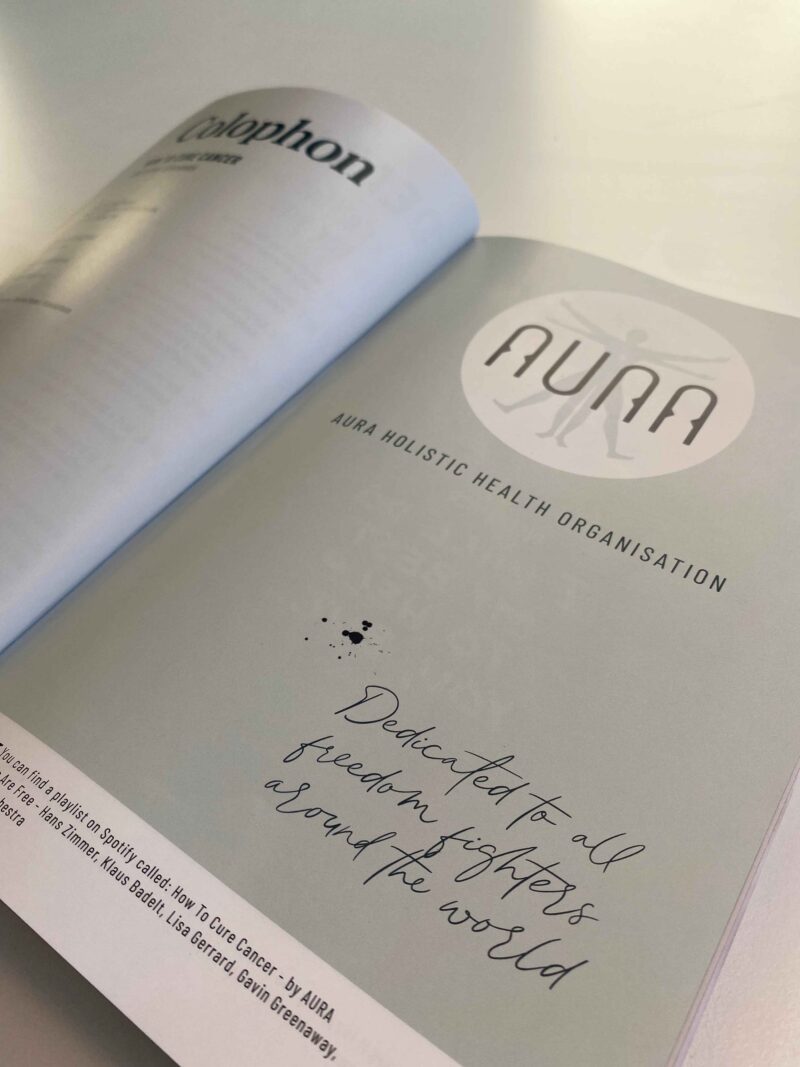 Colophon
TO CURE CANCER
AURA
AURA HOLISTIC HEALTH ORGANISATION
Dedicated to all
freedom fighters
around the world
You can find a playlist on Spotify called: How To Cure Cancer - by AURA
Are Free - Hans Zimmer, Klaus Badelt, Lisa Gerrard, Gavin Greenaway,